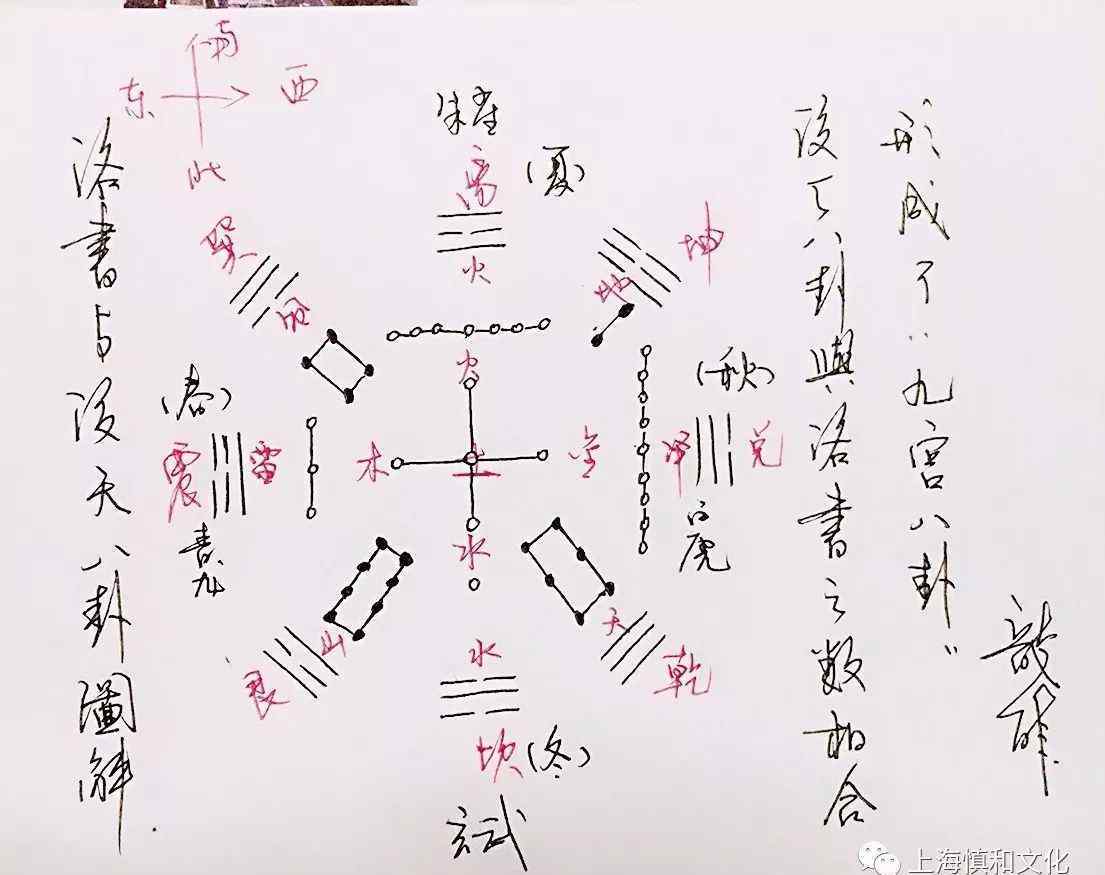 南
东 西
北
洛書与後天八卦圖解
朱雀
离
(夏)
火
巽
风
坤
地
火
(春)
震
雷
青龙
木
土
金
(秋)
泽
兑
白虎
水
艮
山
天
乾
水
坎
(冬)
玄武
後天八卦與洛書之数相合
形成了“九宫八卦”
上海慎和文化